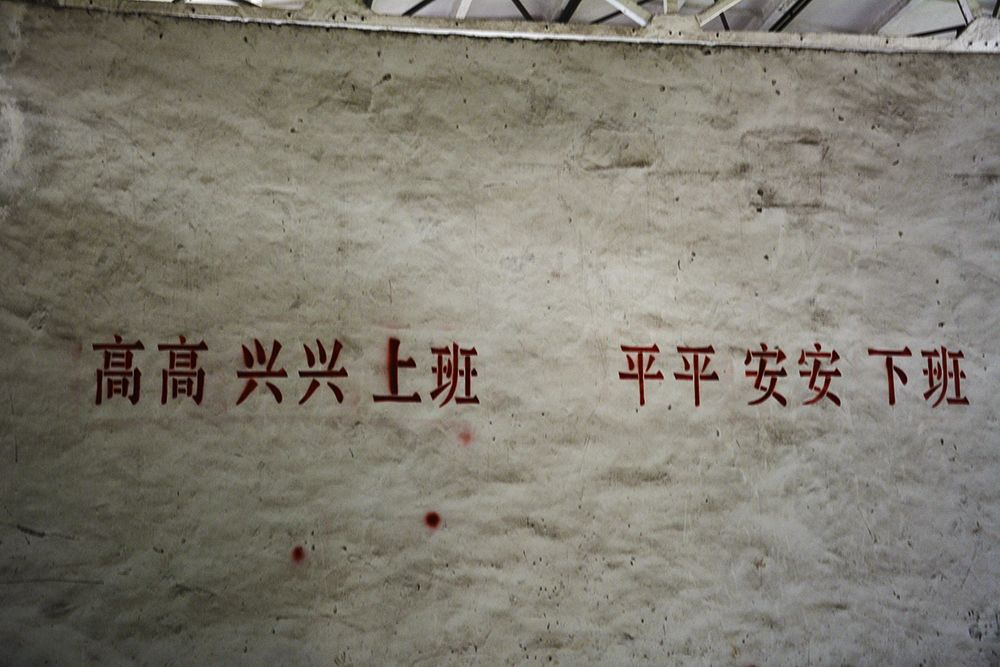 高高兴兴上班 平平安安下班